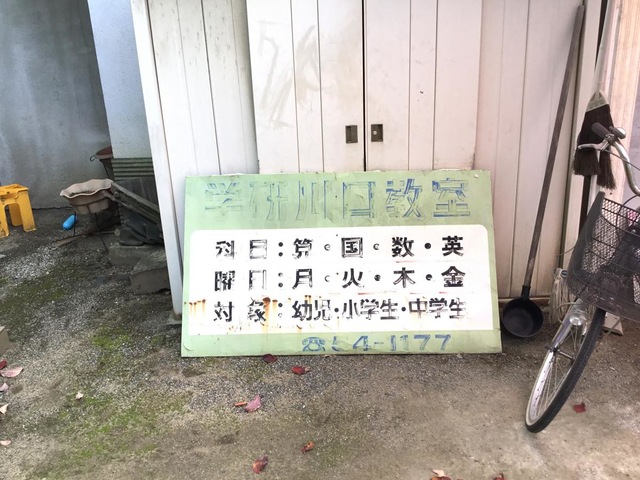 学研川口教室
科目:算・国・数・英
曜日:月・火・木・金
対象:幼児・小学生・中学生
☎54-1177